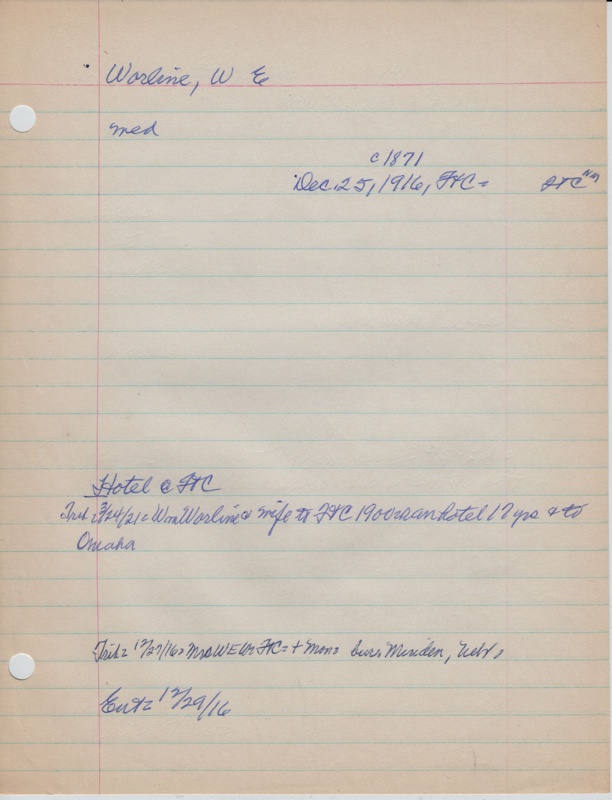 Worline, W E
med
c 1871
Dec. 25, 1916, FtC = FtC
Hotel @ FtC
Trib = 3/24/21 = Wm Worline & wife to FtC 1900 & ran hotel 17 yrs & to
Omaha
Trib = 12/27/16 = Mrs W E W = FtC = + Mon = bur = Minden, Nebr =
Ent = 12/29/16